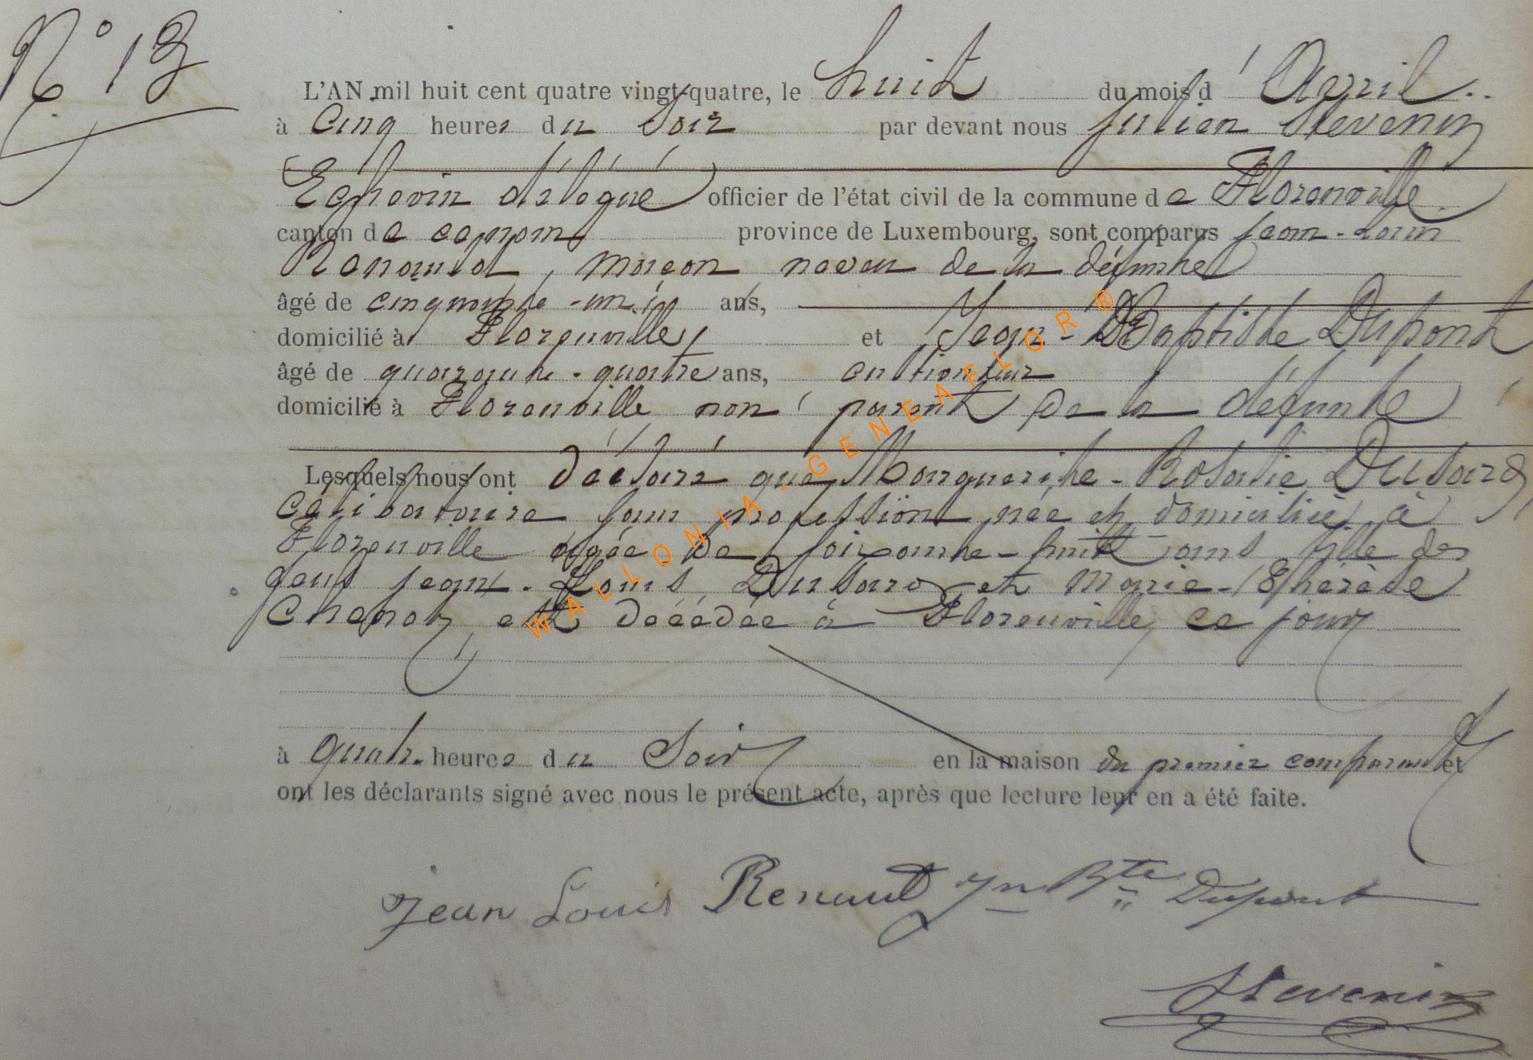 N° 13
L'AN mil huit cent quatre vingt-quatre, le huit du mois d'Avril
à Cinq heures du Soir par devant nous Julien Stevenin
Echevin délégué officier de l'état civil de la commune de Florenville
canton de canton province de Luxembourg, sont comparus Jean-Louis
Renauld, maçon neveu de la défunte
âgé de cinquante-un ans,
domicilié à Florenville et Jean-Baptiste Dupont
âgé de quarante-quatre ans, cultivateur
domicilié à Florenville non parent de la défunte
Lesquels nous ont déclaré que Marguerite-Rosalie Dusard
Célibataire sans profession née et domiciliée à
Florenville agée de soixante-huit ans fille des
feus Jean-Louis Dusard et Marie-Thérèse
Chenot, est décédée à Florenville ce jour
à quatre heures du Soir en la maison du premier comparant et
ont les déclarants signé avec nous le présent acte, après que lecture leur en a été faite.
Jean Louis Renaut Jn Bte Dupont
Stevenin
WALLONIA-GENEALOR®